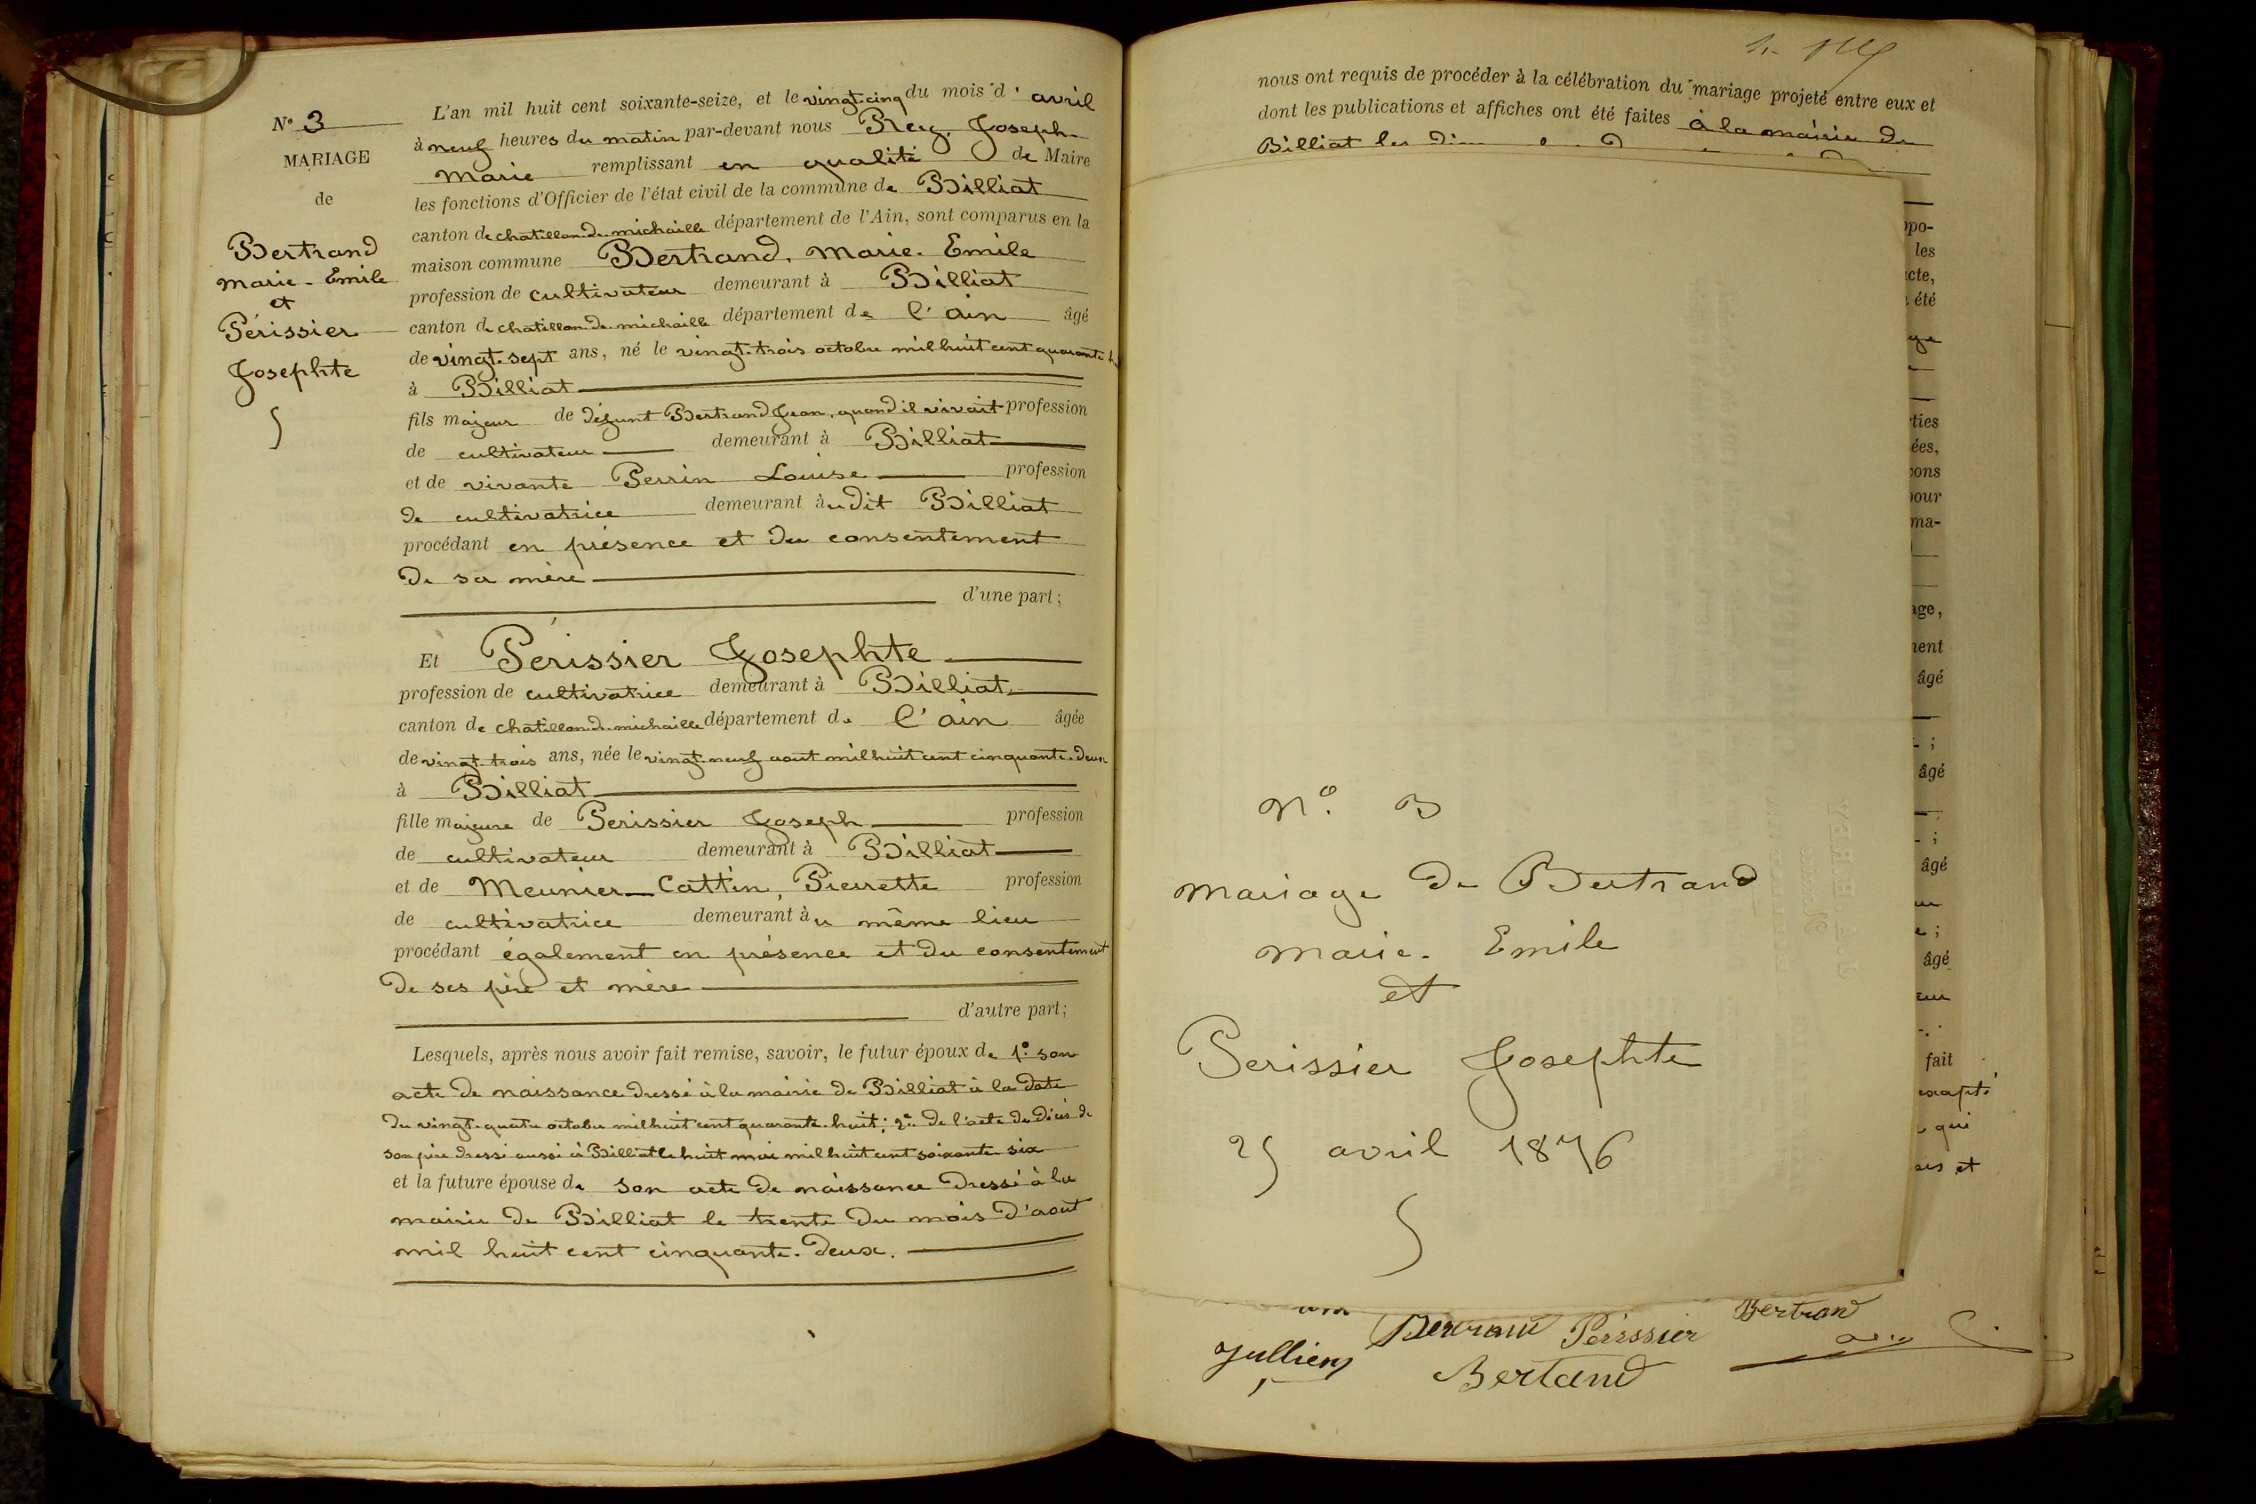 N° 3
MARIAGE
de
Bertrand
Marie-Emile
et
Périssier
Josephte
L'an mil huit cent soixante-seize, et le vingt-cinq du mois d'avril
à neuf heures du matin par-devant nous Rey, Joseph-
Marie remplissant en qualité de Maire
les fonctions d'Officier de l'état civil de la commune de Billiat
canton de chatillon-de-michaille département de l'Ain, sont comparus en la
maison commune Bertrand, Marie-Emile
profession de cultivateur demeurant à Billiat
canton de chatillon-de-michaille département de l'ain âgé
de vingt-sept ans, né le vingt-trois octobre mil huit cent quarante
à Billiat
fils majeur de défunt Bertrand Jean, quand il vivait profession
de cultivateur demeurant à Billiat
et de vivante Perrin Louise profession
de cultivatrice demeurant àudit Billiat
procédant en présence et du consentement
de sa mère
d'une part;
Et Périssier Josephte
profession de cultivatrice demeurant à Billiat
canton de chatillon-de-michaille département de l'ain âgée
de vingt-trois ans, née le vingt-neuf aout mil huit cent cinquante-deux
à Billiat
fille majeure de Perissier Joseph profession
de cultivateur demeurant à Billiat
et de Meunier-Cattin, Pierrette profession
de cultivatrice demeurant àu même lieu
procédant également en présence et du consentement
de ses père et mère
d'autre part;
Lesquels, après nous avoir fait remise, savoir, le futur époux de 1° son
acte de naissance dressé à la mairie de Billiat à la date
du vingt-quatre octobre mil huit cent quarante-huit; 2° de l'acte de décès de
son père dressé aussi à Billiat le huit mai mil huit cent soixante six
et la future épouse de son acte de naissance dressé à la
mairie de Billiat le trente du mois d'aout
mil huit cent cinquante-deux.
nous ont requis de procéder à la célébration du mariage projeté entre eux et
dont les publications et affiches ont été faites à la mairie de
Billiat les
les
cte,
été
ties
ées,
ons
our
ma-
age,
ent
âgé
âgé
âgé
âgé
fait
excepté
qui
et
N° 3
Mariage de Bertrand
Marie-Emile
et
Perissier Josephte
25 avril 1876
Jullien
Bertrand Périssier Bertrand
Bertand